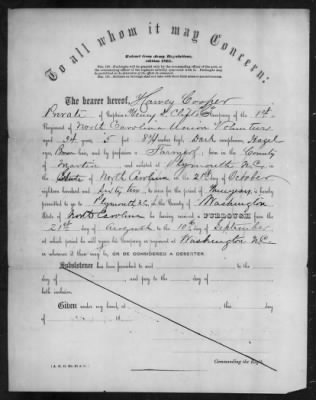 To all whom it may Concern:
Extract from Army Regulations,
edition 1861.
The bearer hereof, Harvey Cooper
Private of Captain Henry S. Company of the 1st
Regiment of North Carolina Union Volunteers
aged 24 years, 5 feet 8 high, Dark complexion, Hazel
eyes, Brown hair, and by profession a Farmer, born in the County
of Martin and enlisted at Plymouth N.C., in
the State of North Carolina the 21st day of October
eighteen hundred and Sixty two, to serve for the period of is hereby
permitted to go to Plymouth, N.C., in the County of Washington
State of North Carolina he having received a FURLOUGH from the
21st day of August to the 10th day of September
at which period he will rejoin his Company or regiment at Washington N.C.
or wherever it then may be, OR BE CONSIDERED A DESERTER.
Subsistence has been furnished to said to the
day of and pay to the day of
both inclusive.
Given under my hand, at this day
of 18
Commanding the Reg't.